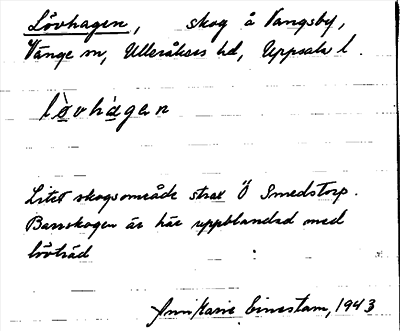 Lövhagen, skog å Vangsby,
Vänge sn, Ulleråkers hd, Uppsala l.
lòvhàgen
Litet skogsområde strax Ö Smedstorp.
Barrskogen är här uppblandad med
lövträd
AnnMarie Einestam, 1943